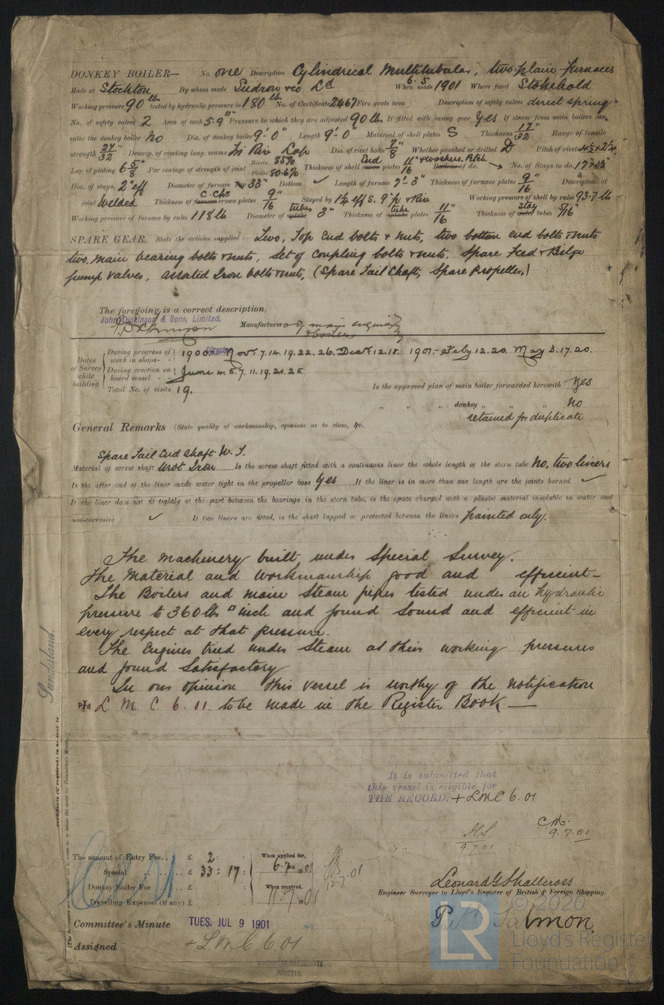 DONKEY BOILER— No. one Description Cylindrical Multitubular, two plain furnaces
Made at Stockton By whom made Sudron & Co Ld When made 6.5.1901 Where fixed Stokehold
Working pressure 90 lb tested by hydraulic pressure to 180 lb No. of Certificate 2467 Fire grate area Description of safety valves direct spring
No. of safety valves 2 Area of each 5.9" Pressure to which they are adjusted 90 lb If fitted with easing gear Yes If steam from main boilers can
enter the donkey boiler No Dia. of donkey boiler 9'.0" Length 9'.0" Material of shell plates S Thickness 17/32 Range of tensile
strength 27/32 Descrip. of riveting long. seams Tr Riv Lap Dia. of rivet holes 7/8 Whether punched or drilled D Pitch of rivets
Lap of plating 6 5/8 Per centage of strength of joint Rivets 85% Plates Thickness of shell End plates 11/16 No. of Stays to do.
Dia. of stays 2" eff Diameter of furnace 33" Bottom Length of furnace 7'-3" Thickness of furnace plates 9/16 Description of
joint Welded Thickness of C Chr crown plates 9/16 Stayed by Working pressure of shell by rules 93.7 lb
Working pressure of furnace by rules 118 lb Diameter of tubes 3" Thickness of tube plates 11/16 Thickness of stay tubes 5/16
SPARE GEAR. State the articles supplied:— Two, Top End bolts & nuts, two bottom end bolts & nuts
two main bearing bolts & nuts, Set of Coupling bolts & nuts, Spare Feed & Bilge
pump valves, assorted Iron bolts & nuts, (Spare Tail Shaft, Spare Propeller,)
The foregoing is a correct description,
John Dickinson & Sons, Limited.
Manufacturer of main engines
& boilers
Dates of Survey while building
During progress of work in shops— 1900. Nov. 7.14.19.22.26. Dec 12.18. 1901. Feby 12.20. May 3.17.20.
During erection on board vessel— June 4.5.7.11.19.21.25
Total No. of visits 19. Is the approved plan of main boiler forwarded herewith Yes
" " " donkey " " " No
retained for duplicate
General Remarks (State quality of workmanship, opinions as to class, &c.
Spare Tail End Shaft W.I.
Material of screw shaft Wrot Iron Is the screw shaft fitted with a continuous liner the whole length of the stern tube No, two liners
Is the after end of the liner made water tight in the propeller boss Yes If the liner is in more than one length are the joints burned ✓
If the liner does not fit tightly at the part between the bearings in the stern tube, is the space charged with a plastic material insoluble in water and
non-corrosive ✓ If two liners are fitted, is the shaft lapped or protected between the liners painted only.
The machinery built under Special Survey.
The Material and Workmanship good and efficient—
The Boilers and main Steam pipes tested under an hydraulic
pressure to 360 lbs □" inch and found Sound and efficient in
every respect at that pressure.
The Engines tried under Steam at their working pressures
and found Satisfactory
In our opinion this vessel is worthy of the notification
+ L M C 6.01 to be made in the Register Book—
It is submitted that
this vessel is eligible for
THE RECORD. + LMC 6.01
9.7.01
9.7.01
The amount of Entry Fee.. £ 2 : : When applied for,
Special .. £ 33 : 17 : 6.7.01
Donkey Boiler Fee .. £ : : When received,
Travelling Expenses (if any) £ : : 11.7.01
Leonard G Shallcross
Engineer Surveyor to Lloyd's Register of British & Foreign Shipping.
Committee's Minute TUES. JUL 9 1901
Assigned + LMC 6.01
Sunderland
LR
© 2020
Lloyd's Register
Foundation